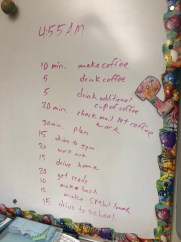 4:55 AM
10 min. make coffee
5 drink coffee
5 drink additional
cup of coffee
20 min. check mail
work
30 min. plan
15 drive to gym
20 work out
15 drive home
20 get ready
10 make lunch
10 make
15 drive to school